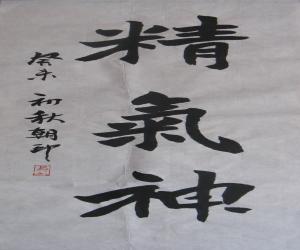 精氣神
癸未初秋朝印